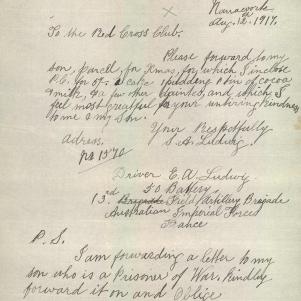 Narraweena
Aug. 12. 1917.
To the Red Cross Club.
Please forward to my
son, parcel, for Xmas, for which I inclose
P.C. for 5/- a cake, pudding & tin of cocoa
& milk, & a few other dainties, and which I
feel most greatful to your untiring kindness
to me & my Son.
Your Respectfully
S. A. Ludwig.
Adress.
Driver E. A. Ludwig
50 Battery
13rd Brigade Field Artillery Brigade
Australian Imperial Forces
France
P. S.
I am forwarding a letter to my
son who is a Prisoner of War. Kindley
forward it on and Oblige